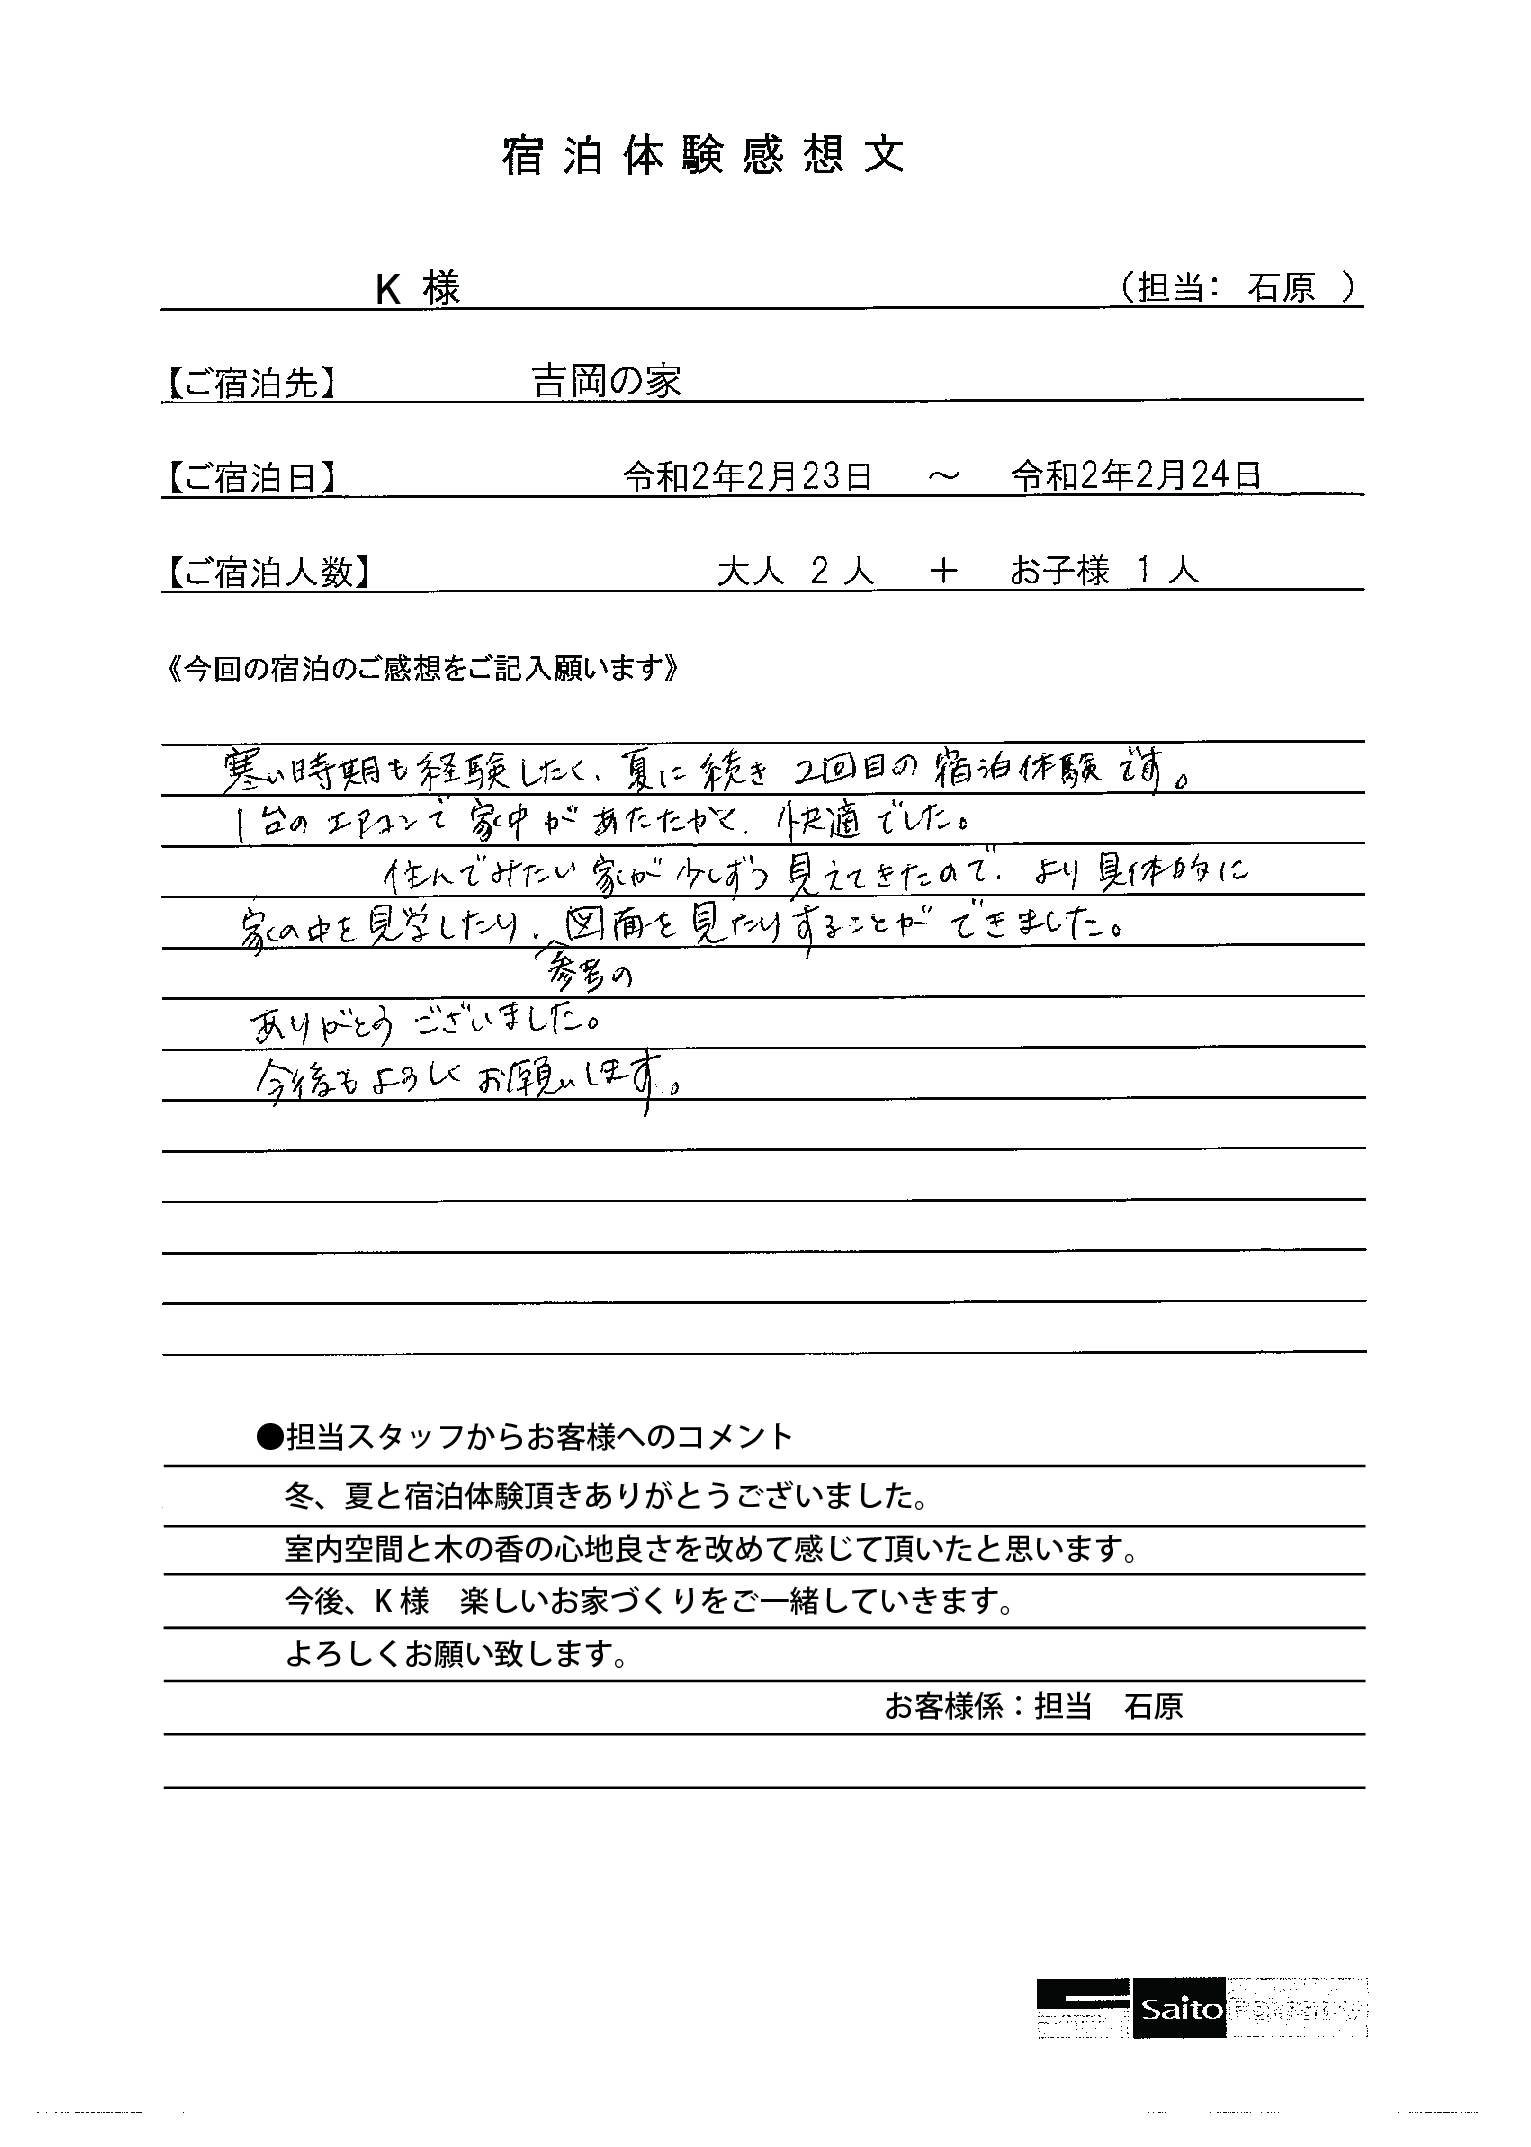 宿泊体験感想文
K 様 （担当： 石原 ）
【ご宿泊先】 吉岡の家
【ご宿泊日】 令和2年2月23日 ～ 令和2年2月24日
【ご宿泊人数】 大人 2 人 ＋ お子様 1 人
《今回の宿泊のご感想をご記入願います》
寒い時期も経験したく、夏に続き 2回目の宿泊体験です。
1台のエアコンで家中があたたかく、快適でした。
住んでみたい家が少しずつ見えてきたので、より具体的に
家の中を見学したり、図面を見たりすることができました。
参考の
ありがとうございました。
今後もよろしくお願いします。
●担当スタッフからお客様へのコメント
冬、夏と宿泊体験頂きありがとうございました。
室内空間と木の香の心地良さを改めて感じて頂いたと思います。
今後、K 様　楽しいお家づくりをご一緒していきます。
よろしくお願い致します。
お客様係：担当　石原
Saito